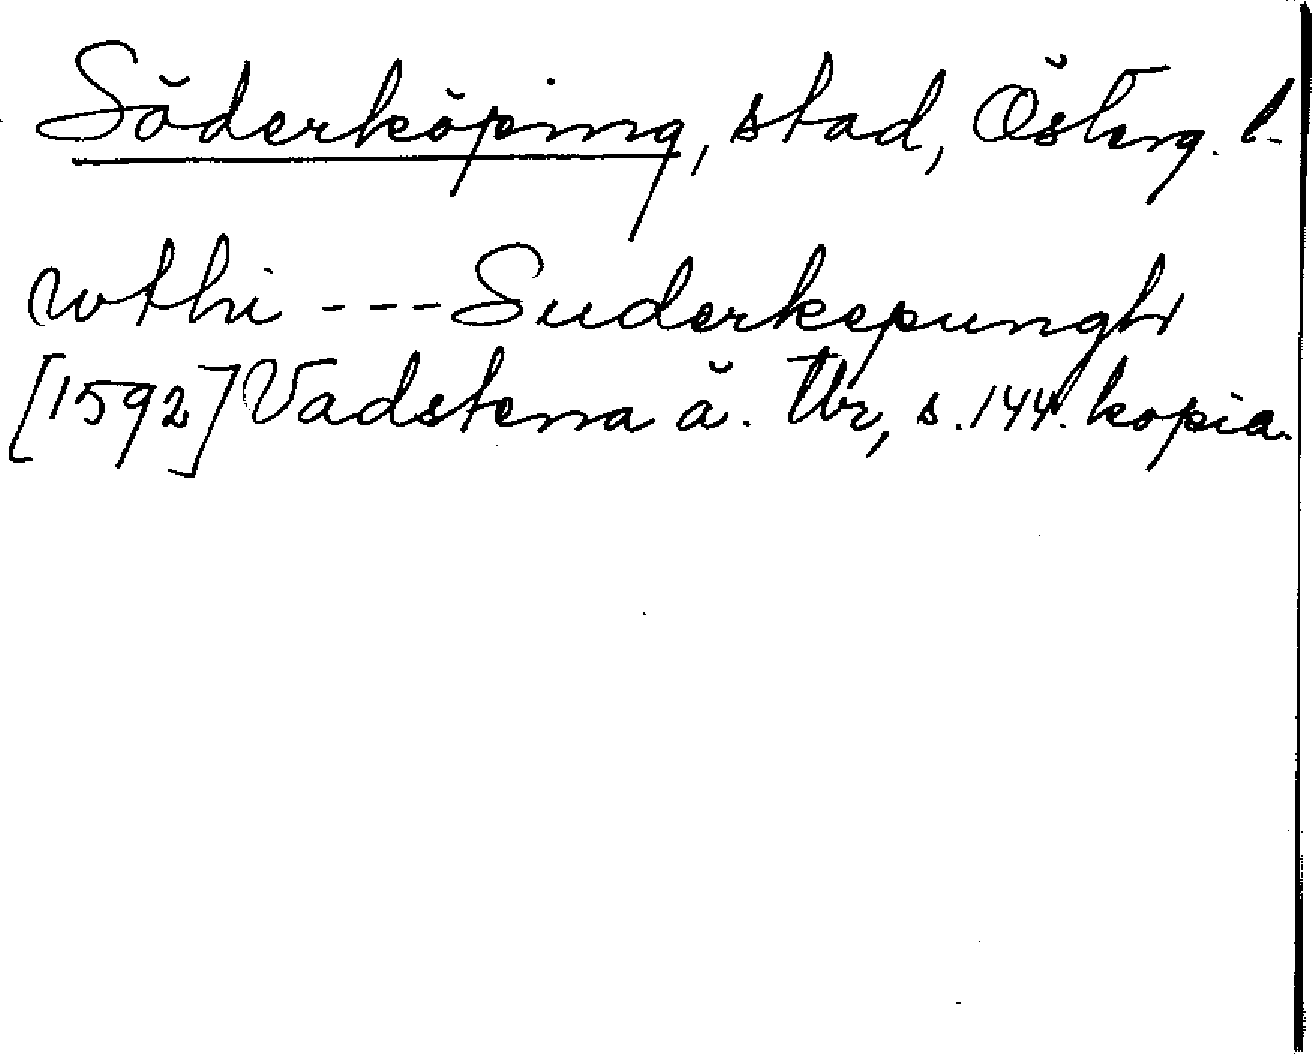 Söderköping, stad, Österg. l.
wthi --- Suderkepungh
[1592] Vadstena ä. Tbr, s. 144. kopia.